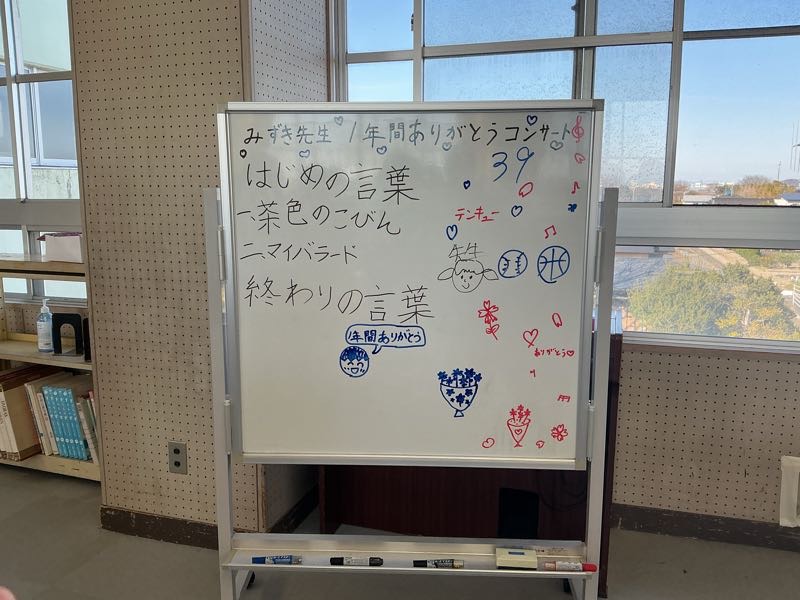 みずき先生 1年間ありがとうコンサート
はじめの言葉
39
一、茶色のこびん
テンキュー
二、マイバラード
先生
終わりの言葉
1年間ありがとう
ありがとう